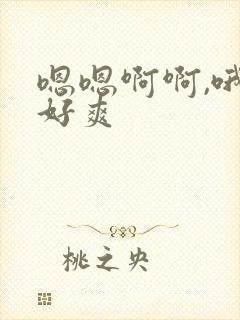 嗯嗯啊啊,哦
好爽
桃之央